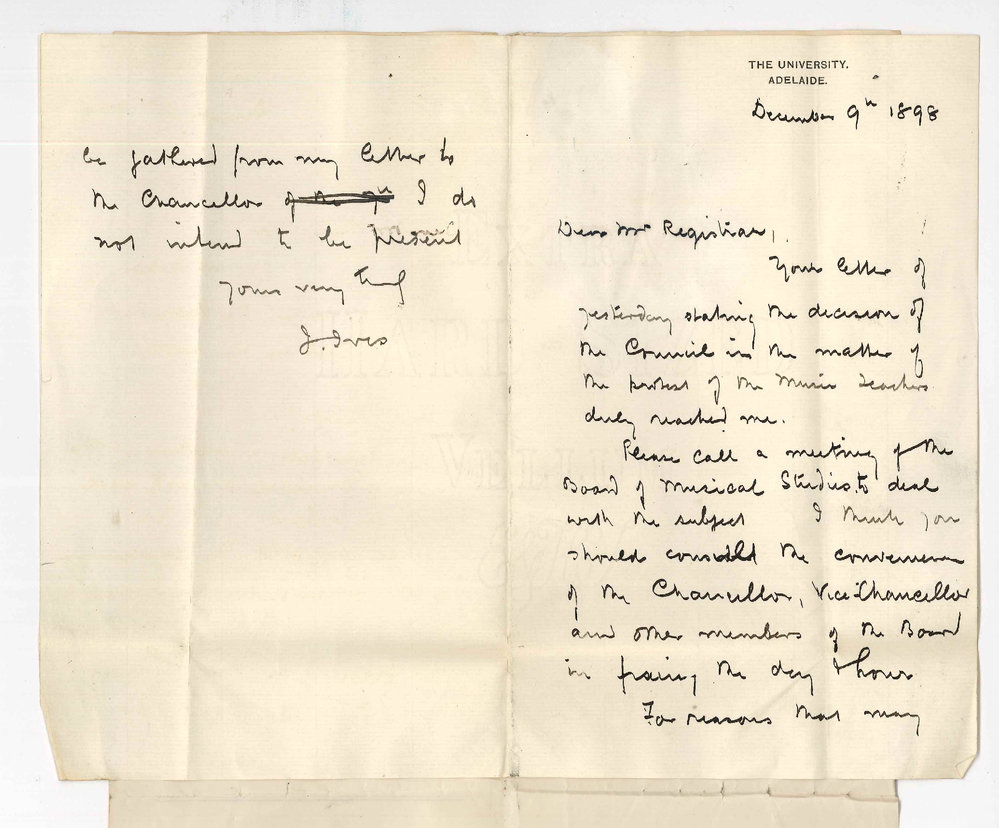 THE UNIVERSITY,
ADELAIDE.
December 9th 1898
Dear Mr Registrar,
Your letter of
yesterday stating the decision of
the Council in the matter of
the protest of the Music Teachers
duly reached me.
Please call a meeting of the
Board of Musical Studies to deal
with the subject I think you
should consult the convenience
of the Chancellor, Vice-Chancellor
and other members of the Board
in fixing the day & hour
For reasons that may
be gathered from my letter to
the Chancellor of the 7th I do
not intend to be present
Yours very truly
J. Ives